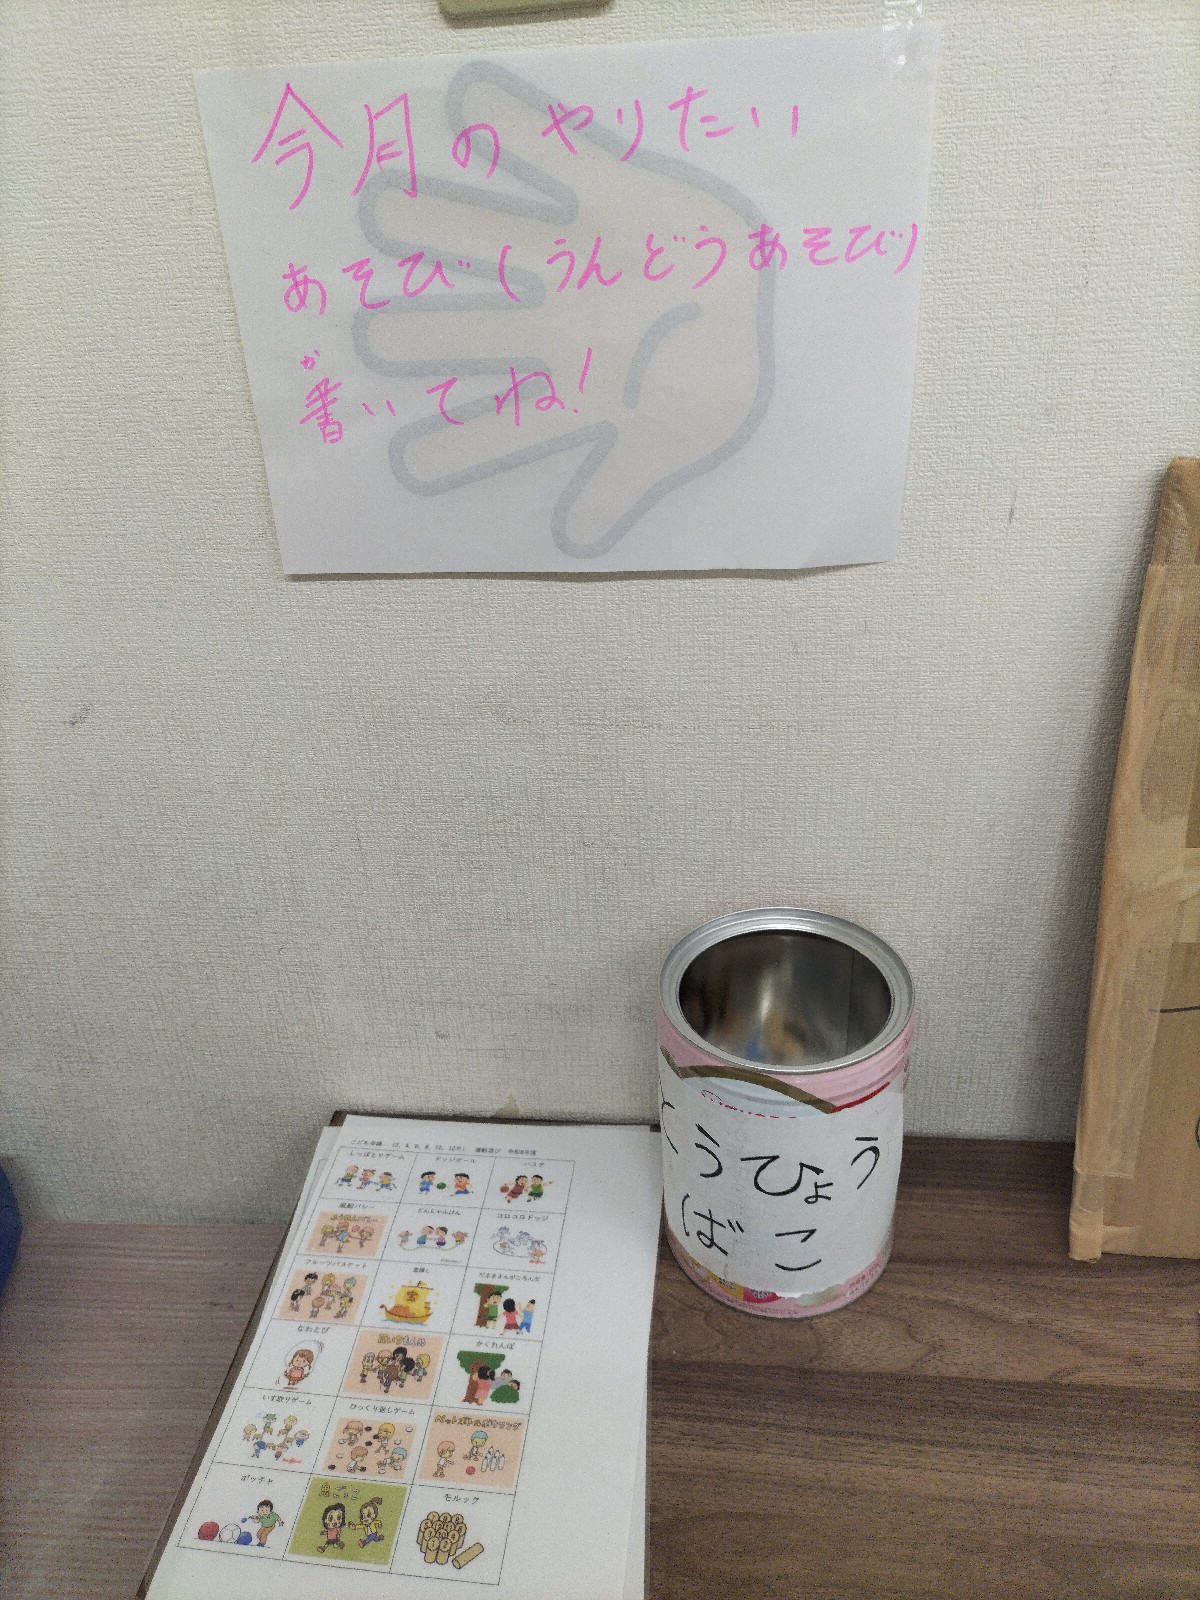 今月のやりたい
あそび(うんどうあそび)
書いてね!
か
とうひょう
ばこ
しっぽとりゲーム
ドッジボール
バスケ
風船バレー
どんじゃんけん
コロコロドッジ
フルーツバスケット
宝探し
だるまさんがころんだ
なわとび
はないちもんめ
かくれんぼ
いす取りゲーム
ひっくり返しゲーム
ペットボトルボウリング
ボッチャ
鬼ごっこ
モルック